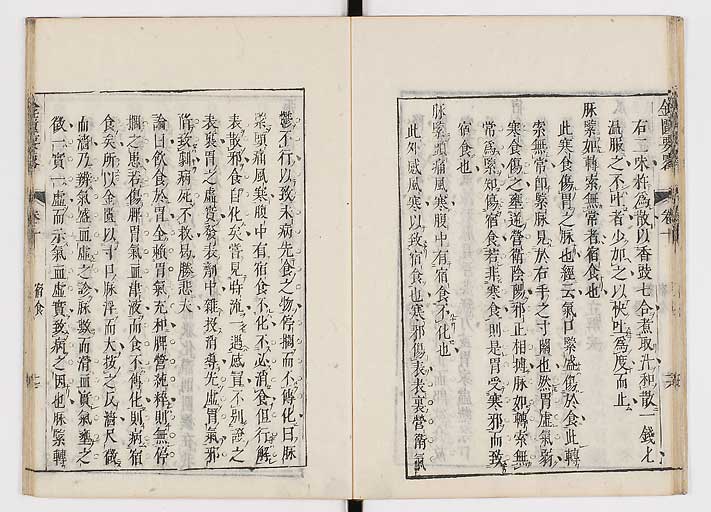 右二味杵為散以香豉七合煮取汁和散一錢匕
溫服之不吐者少加之以快吐為度而止
脉緊如轉索無常者宿食也
此寒食傷胃之脉也經云氣口緊盛傷於食此轉
索無常即緊脉見於右手之寸關也然胃虛氣弱
寒食傷之壅遏營衛陰陽邪正相搏脉如轉索無
常為緊知傷宿食若非寒食則是胃受寒邪而致
宿食也
脉緊頭痛風寒腹中有宿食不化也
此外感風寒以致宿食也寒邪傷表表裏營衛氣
鬱不行以致未病先食之物停擱而不傳化曰脉
緊頭痛風寒腹中有宿食不化不必消食但行解
表散邪食自化矣嘗見時流一遇感冒不別證之
表裏胃之虛實發表劑中雜投消導先虛胃氣邪
陷致劇病死不救易勝悲夫
論曰飲食於胃全賴胃氣充和脾營純粹則無停
擱之患若傷脾胃氣血津液而食不傳化則病宿
食矣所以金匱以寸口脉浮而大按之反濇尺微
而濇乃辨氣盛血虛之診脉數而滑血實氣壅之
徵一實一虛而示氣血虛實致病之因也脉緊轉
金匱要略
卷十
宿食